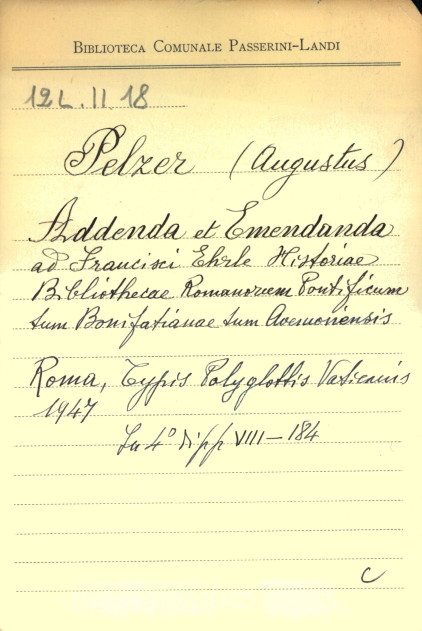 BIBLIOTECA COMUNALE PASSERINI-LANDI
12L.II.18
Pelzer (Augustus)
Addenda et Emendanda
ad Francisci Ehrle Historiae
Bibliothecae Romanorum Pontificum
tum Bonifatianae tum Avenionensis
Roma, Typis Polyglottis Vaticanis
1947
In 4° di pp VIII-184
C